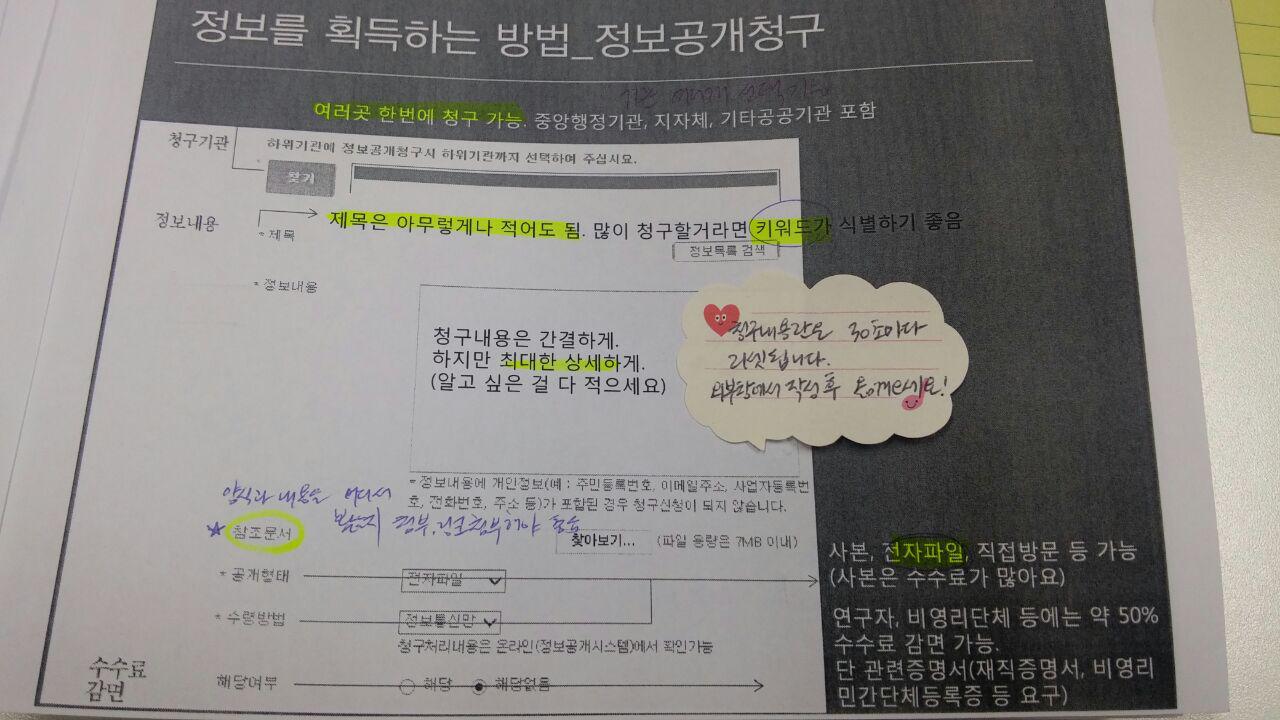 정보를 획득하는 방법_정보공개청구
여러곳 한번에 청구 가능. 중앙행정기관, 지자체, 기타공공기관 포함
청구기관
하위기관에 정보공개청구시 하위기관까지 선택하여 주십시요.
찾기
정보내용
* 제목
제목은 아무렇게나 적어도 됨. 많이 청구할거라면 키워드가 식별하기 좋음
정보목록 검색
* 정보내용
청구내용은 간결하게.
하지만 최대한 상세하게.
(알고 싶은 걸 다 적으세요)
청구내용란은 30초마다
리셋됩니다.
외부창에서 작성 후
* 정보내용에 개인정보(예 : 주민등록번호, 이메일주소, 사업자등록번
호, 전화번호, 주소 등)가 포함된 경우 청구신청이 되지 않습니다.
양식과 내용을 어디서
★ 참조문서
찾아보기... (파일 용량은 7MB 이내)
* 공개형태
전자파일
사본, 전자파일, 직접방문 등 가능
(사본은 수수료가 많아요)
* 수령방법
정보통신망
청구처리내용은 온라인(정보공개시스템)에서 확인가능
연구자, 비영리단체 등에는 약 50%
수수료 감면 가능.
단 관련증명서(재직증명서, 비영리
민간단체등록증 등 요구)
수수료
감면
해당여부
해당
해당없음